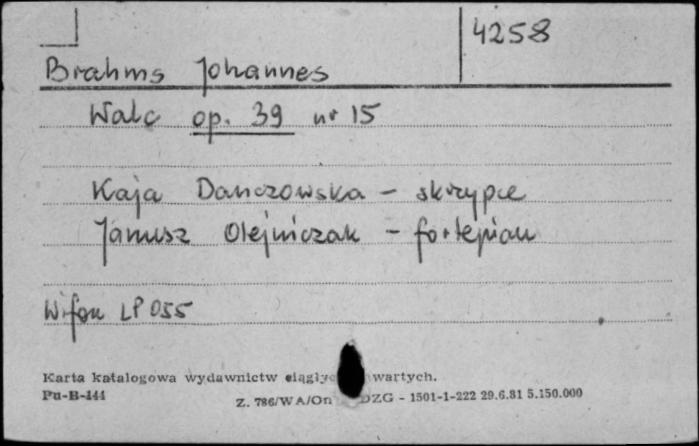 4258
Brahms Johannes
Walc op. 39 nr 15
Kaja Danczowska - skrzypce
Janusz Olejniczak - fortepian
Wifon LP 055
Karta katalogowa wydawnictw wartych.
Pu-B-144
Z. 786/WA/On DZG - 1501-1-222 29.6.81 5.150.000